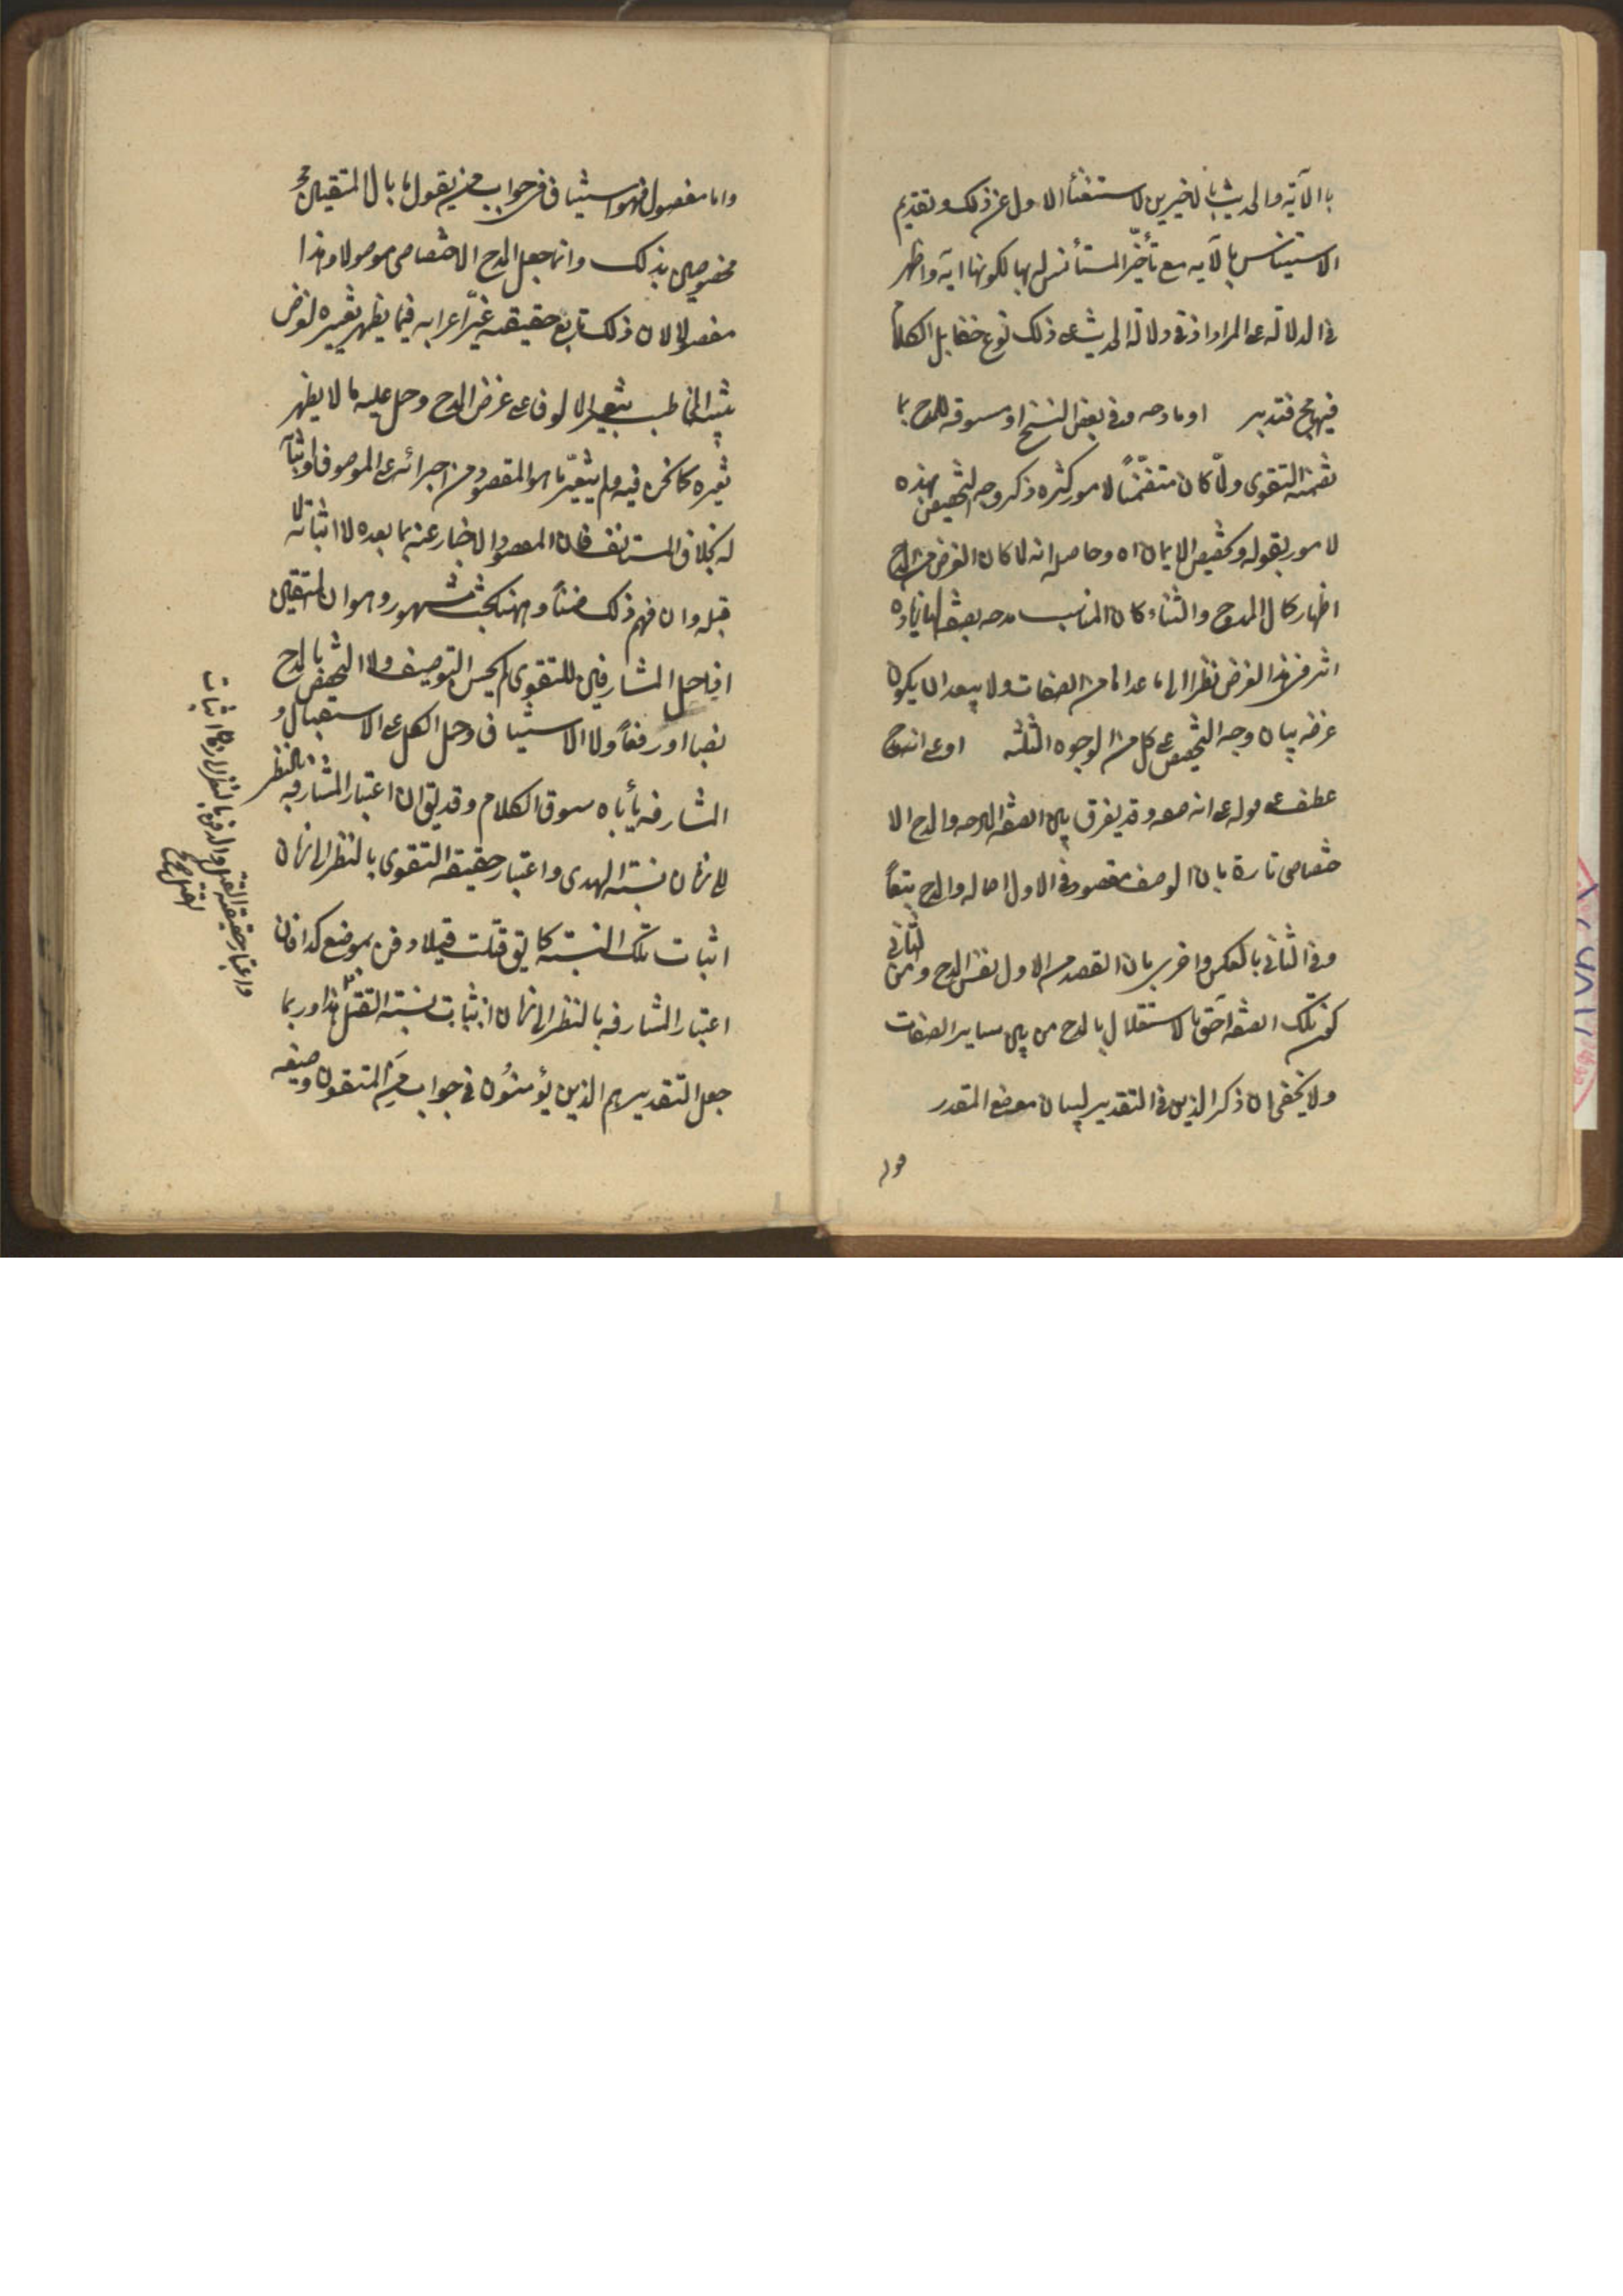 باالآية والحديث بالاخيرين لاستغناء الاول عن ذلك وتقديم
الاستيناس بالآيه مع تأخّر المستأنس له بها لكونها اية واظهر
في الدلالة على المراد اذ في دلالة الحديث على ذلك نوع خفا بل الكلام
فيها بح فتدبر او مادحه وفي بعض النسخ او مسوقه للمدح بما
تضمنه التقوى ولمّا كان متضمّناً لامور كثيره ذكر وجه التخصيص بهذه
لامور بقوله وتخصيص الايمان اه وحاصله انه لما كان الغرض من المدح
اظهار كمال الممدوح والثناء كان المناسب مدحه بصفة لها زيادة
اثر في هذا الغرض نظرا الى ما عداها من الصفات ولا يبعد ان يكون
غرضه بيان وجه التخصيص على كل من الوجوه الثلثه او على انه مدح
عطف على قوله على انه صفه وقد يفرق بين الصفه المادحه والمدح الا
ختصاصى تارة بان الوصف مقصود في الاول اصاله والمدح تبعاً
وفي الثاني بالعكس واخرى بان القصد من الاول نفس المدح ومن الثاني
كون تلك الصفه احق بالاستقلال بالمدح من بين ساير الصفات
ولا يخفى ان ذكر الذين في التقدير لبيان موضع المقدر
واما مفصول فهو استيناف في جواب من يقول ما بال المتقين
مخصوصين بذلك وانما جعل المدح الاختصاصى موصولا وهذا
مفصولا لان ذلك تابع حقيقه غيّر اعرابه فيما يظهر تغييره لغرض
تنبيه المخاطب بتغيير المالوف على غرض المدح وحمل عليه ما لا يظهر
تغيره كما نحن فيه ولم يتغيّر ما هو المقصود من اجرائه على الموصوف واثباته
له بخلاف المستانف فان المقصود الاخبار عنه بما بعده لا اثباته لما
قبله وان فهم ذلك ضمناً وههنا بحث مشهور وهو ان المتقين
اذا حمل المشارفين للتقوى لم يحسن التوصيف ولا التخصيص بالمدح
نصبا او رفعاً ولا الاستيناف وحمل الكل على الاستقبال و
المشارفه يأباه سوق الكلام وقد يق ان اعتبار المشارفه بالنظر
الى زمان نسبة الهدى واعتبار حقيقه التقوى بالنظر الى زمان
اثبات تلك النسبة كما يق قتلت قتيلا دفن بموضع كذا فان
اعتبار المشارفه بالنظر الى زمان اثبات نسبة القتل هذا وربما
جعل التقدير هم الذين يؤمنون في جواب من المتقون وصيغه
واعتبار حقيقة القتل والدفن بالنظر الى زمان اثبات
القتل صح